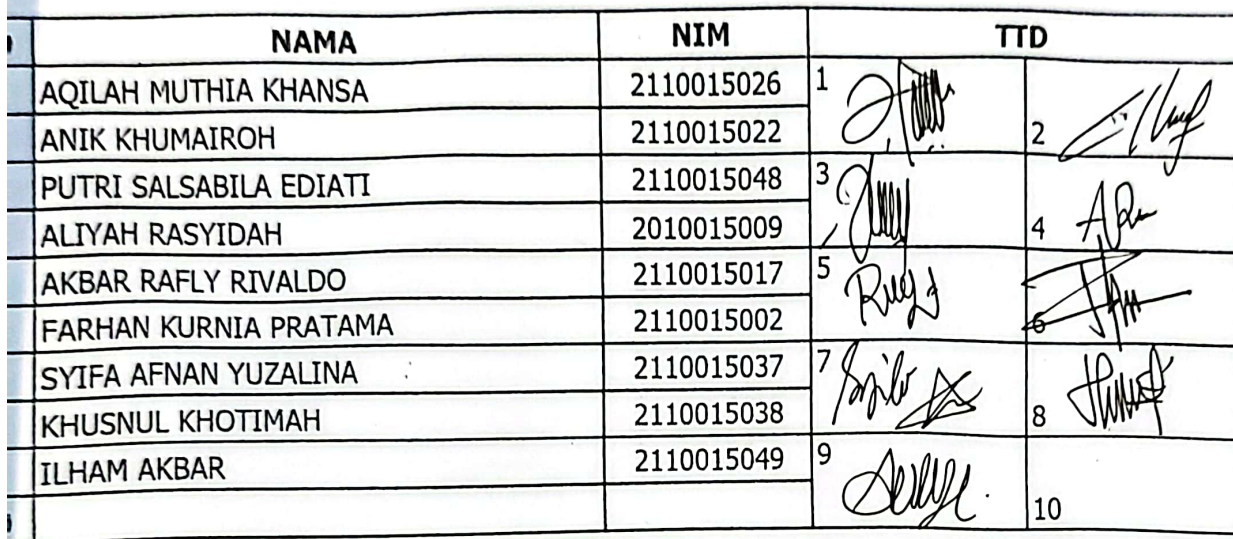 NAMA NIM TTD
AQILAH MUTHIA KHANSA 2110015026 1
ANIK KHUMAIROH 2110015022 2
PUTRI SALSABILA EDIATI 2110015048 3
ALIYAH RASYIDAH 2010015009 4
AKBAR RAFLY RIVALDO 2110015017 5
FARHAN KURNIA PRATAMA 2110015002 6
SYIFA AFNAN YUZALINA 2110015037 7
KHUSNUL KHOTIMAH 2110015038 8
ILHAM AKBAR 2110015049 9
10